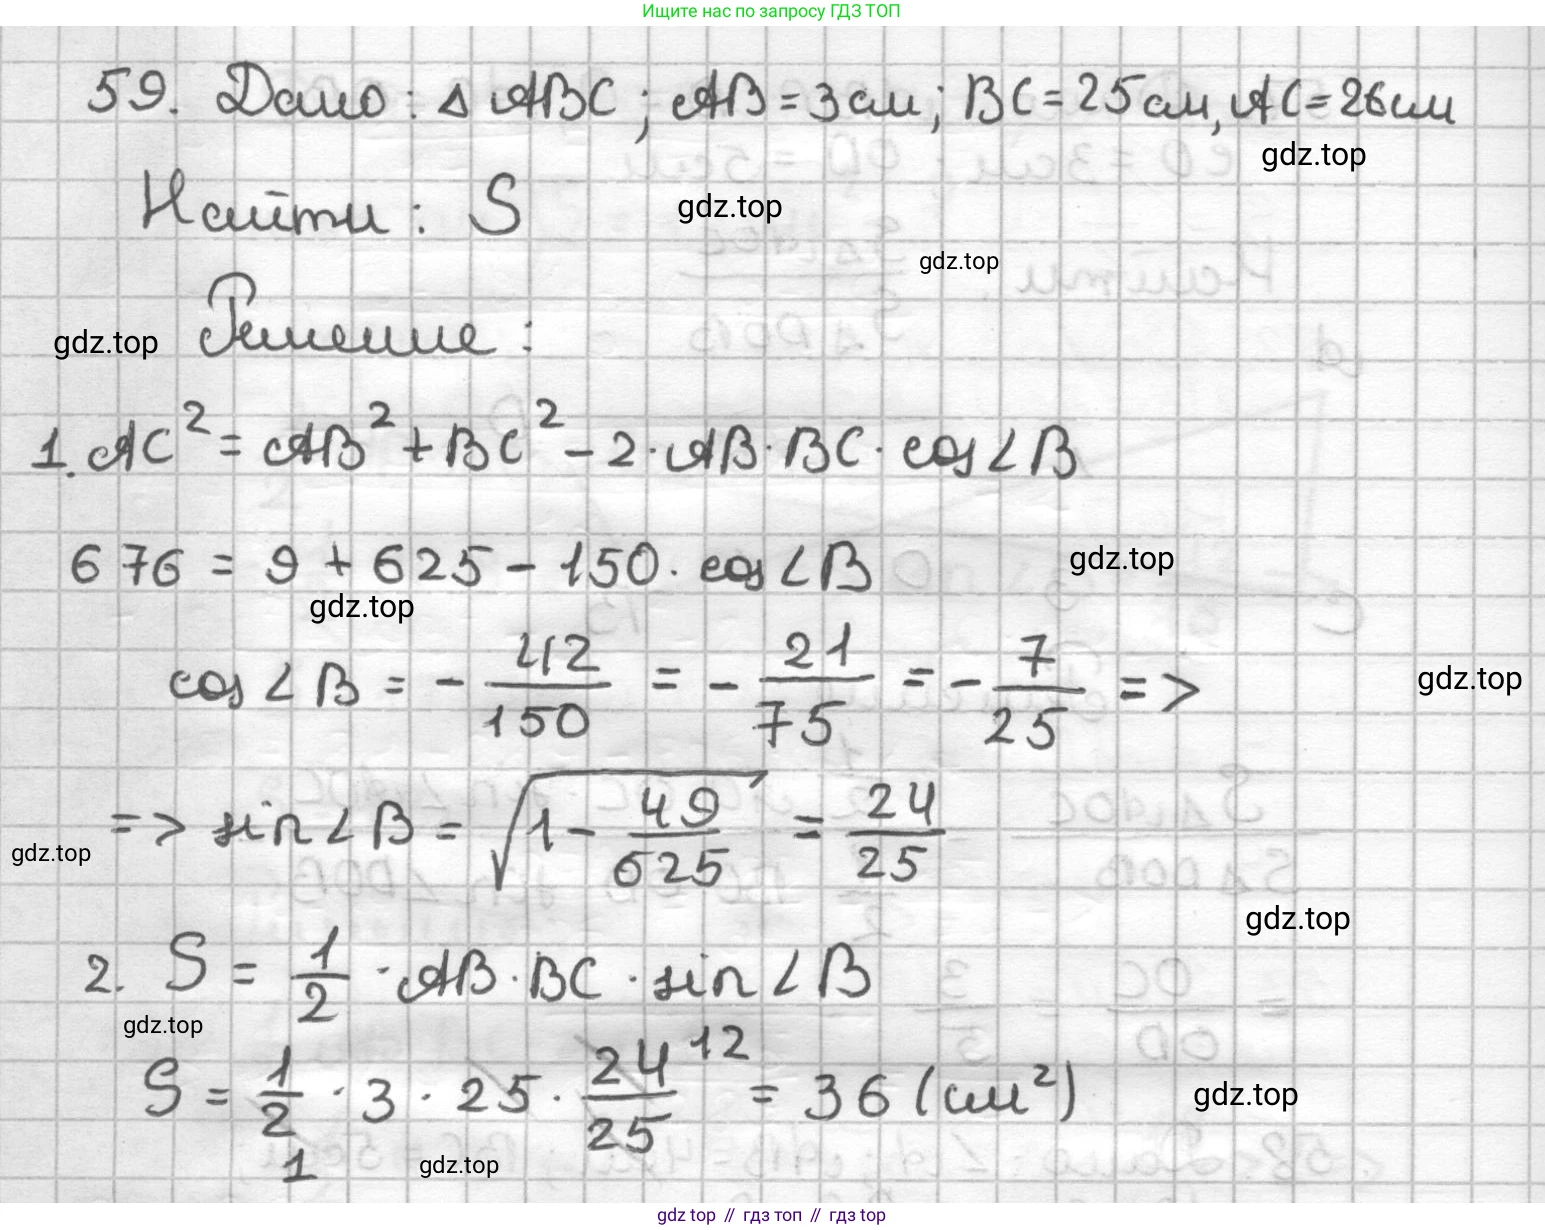 Ищите нас по запросу ГДЗ ТОП
59. Дано: Δ ABC; AB = 3 см; BC = 25 см, AC = 26 см
gdz.top
Найти: S
gdz.top
gdz.top
gdz.top
Решение:
1. AC² = AB² + BC² - 2 · AB · BC · cos∠B
676 = 9 + 625 - 150 · cos∠B
gdz.top
gdz.top
cos∠B = - 42/150 = - 21/75 = - 7/25 =>
gdz.top
=> sin∠B = √(1 - 49/625) = 24/25
gdz.top
gdz.top
2. S = 1/2 · AB · BC · sin∠B
gdz.top
S = 1/2 · 3 · 25 · 24/25 12 = 36 (см²)
gdz.top
1
gdz.top
gdz top // гдз топ // gdz.top